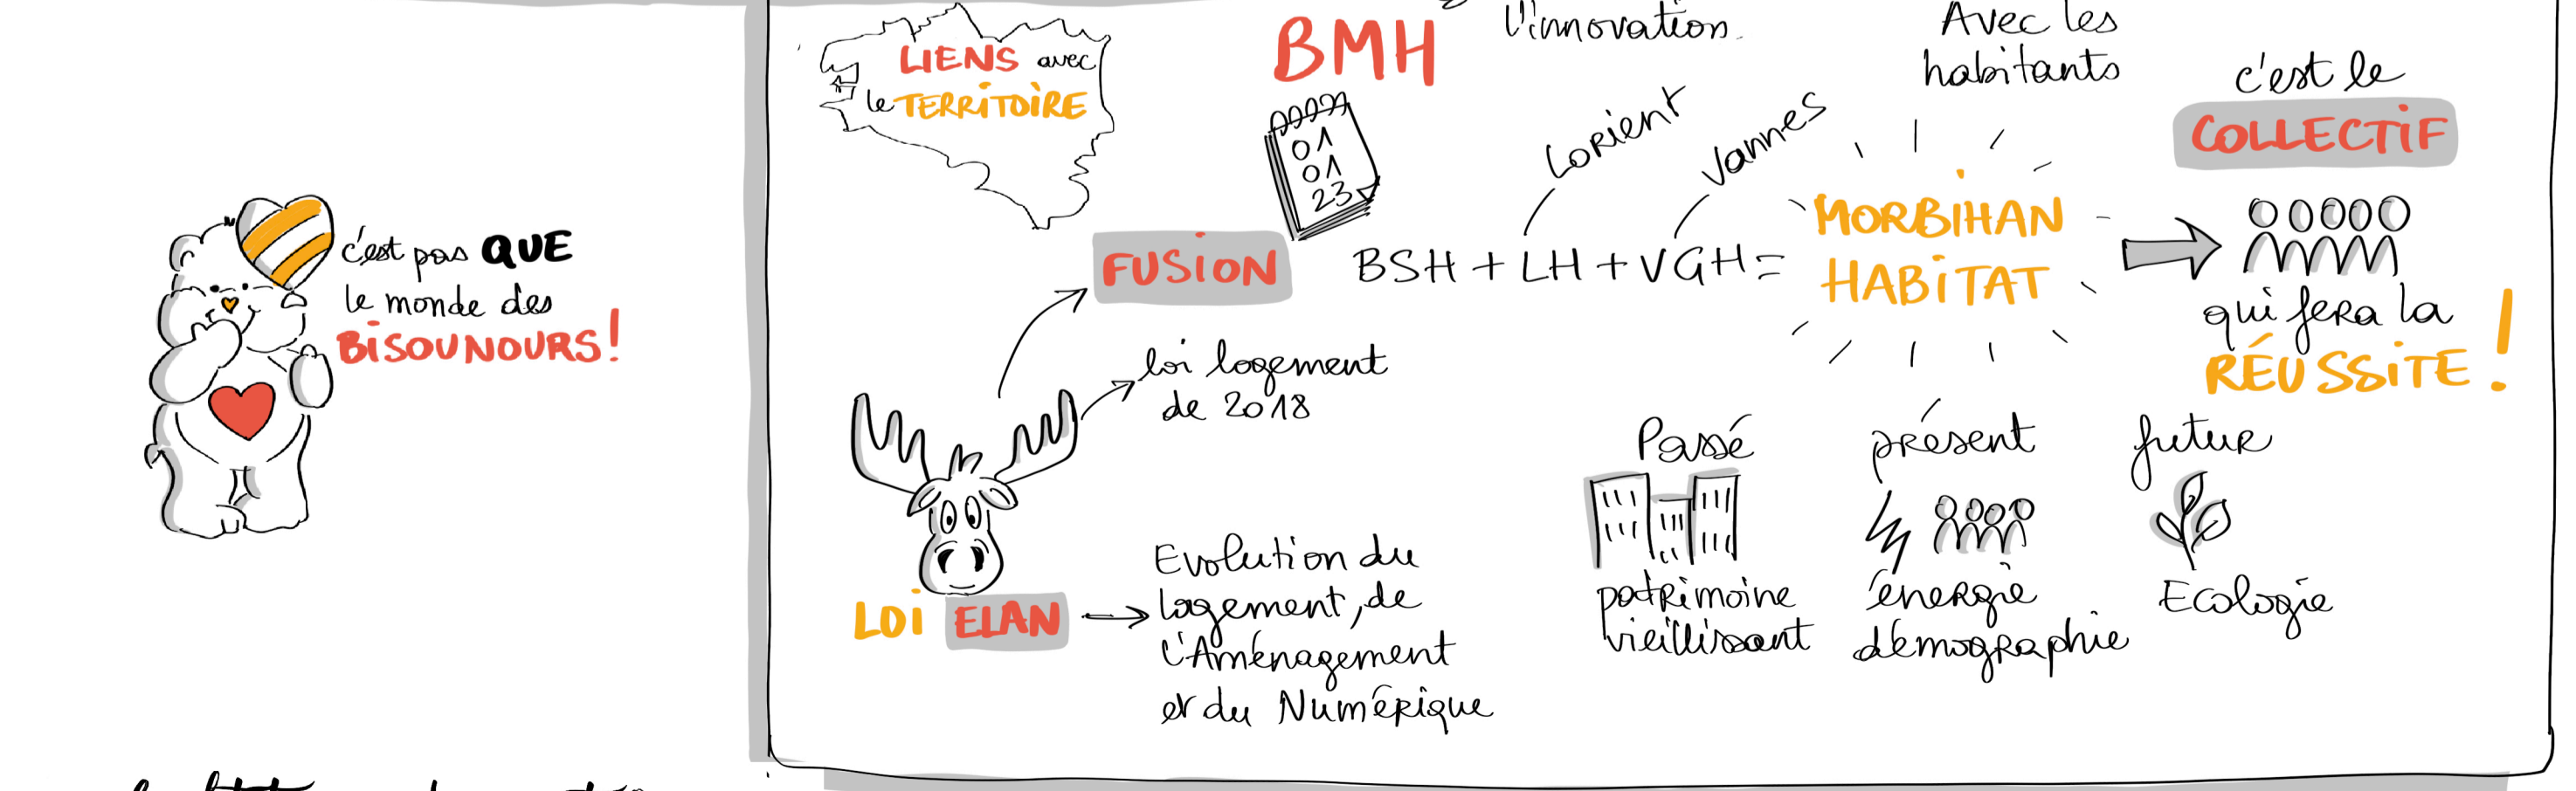 c'est pas QUE
le monde des
BISOUNOURS!
LIENS avec
le TERRITOIRE
BMH
l'innovation.
Avec les
habitants
c'est le
COLLECTIF
01
01
23
Lorient
Vannes
FUSION
BSH + LH + VGH =
MORBIHAN
HABITAT
qui fera la
RÉUSSITE !
loi logement
de 2018
LOI ELAN
Evolution du
logement, de
l'Aménagement
et du Numérique
Passé
patrimoine
vieillissant
présent
énergie
démographie
futur
Ecologie